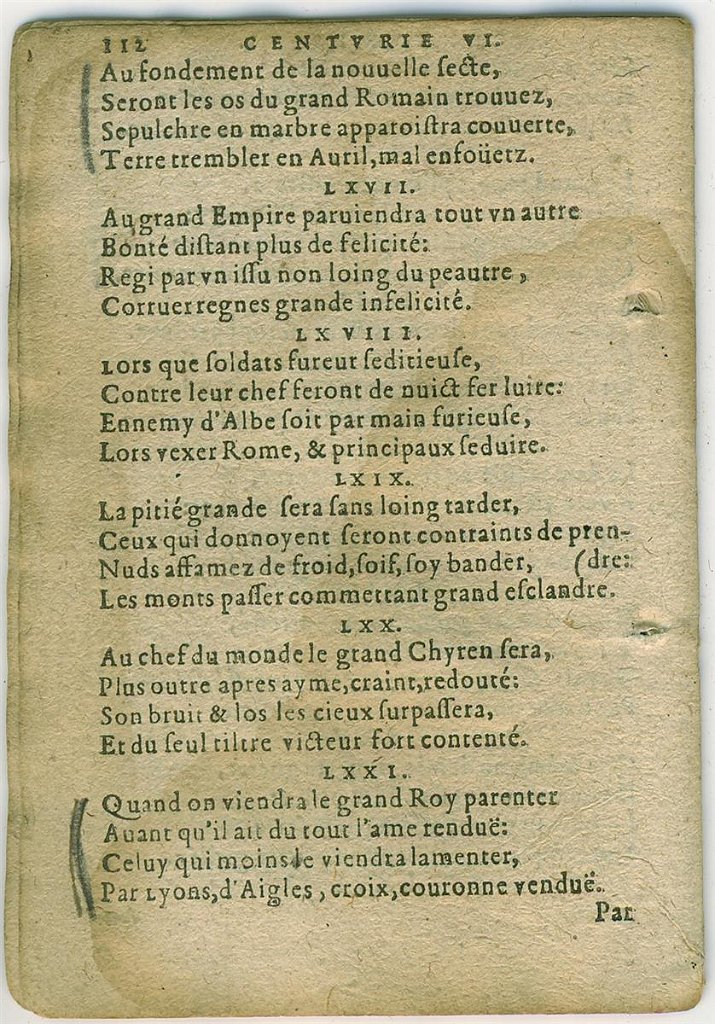 112 CENTVRIE VI.
Au fondement de la nouuelle ſecte,
Seront les os du grand Romain trouuez,
Sepulchre en marbre apparoiſtra couuerte,
Terre trembler en Auril, mal enfoüetz.
LXVII.
Au grand Empire paruiendra tout vn autre
Bonté diſtant plus de felicité:
Regi par vn iſſu non loing du peautre,
Corruer regnes grande infelicité.
LXVIII.
Lors que ſoldats fureur ſeditieuſe,
Contre leur chef feront de nuict fer luire:
Ennemy d'Albe ſoit par main furieuſe,
Lors vexer Rome, & principaux ſeduire.
LXIX.
La pitié grande ſera ſans loing tarder,
Ceux qui donnoyent ſeront contraints de pren-
Nuds affamez de froid, ſoif, ſoy bander, (dre:
Les monts paſſer commettant grand eſclandre.
LXX.
Au chef du monde le grand Chyren ſera,
Plus outre apres ayme, craint, redouté:
Son bruit & los les cieux ſurpaſſera,
Et du ſeul tiltre victeur fort contenté.
LXXI.
Quand on viendra le grand Roy parenter
Auant qu'il ait du tout l'ame renduë:
Celuy qui moins le viendra lamenter,
Par Lyons, d'Aigles, croix, couronne venduë.
Par